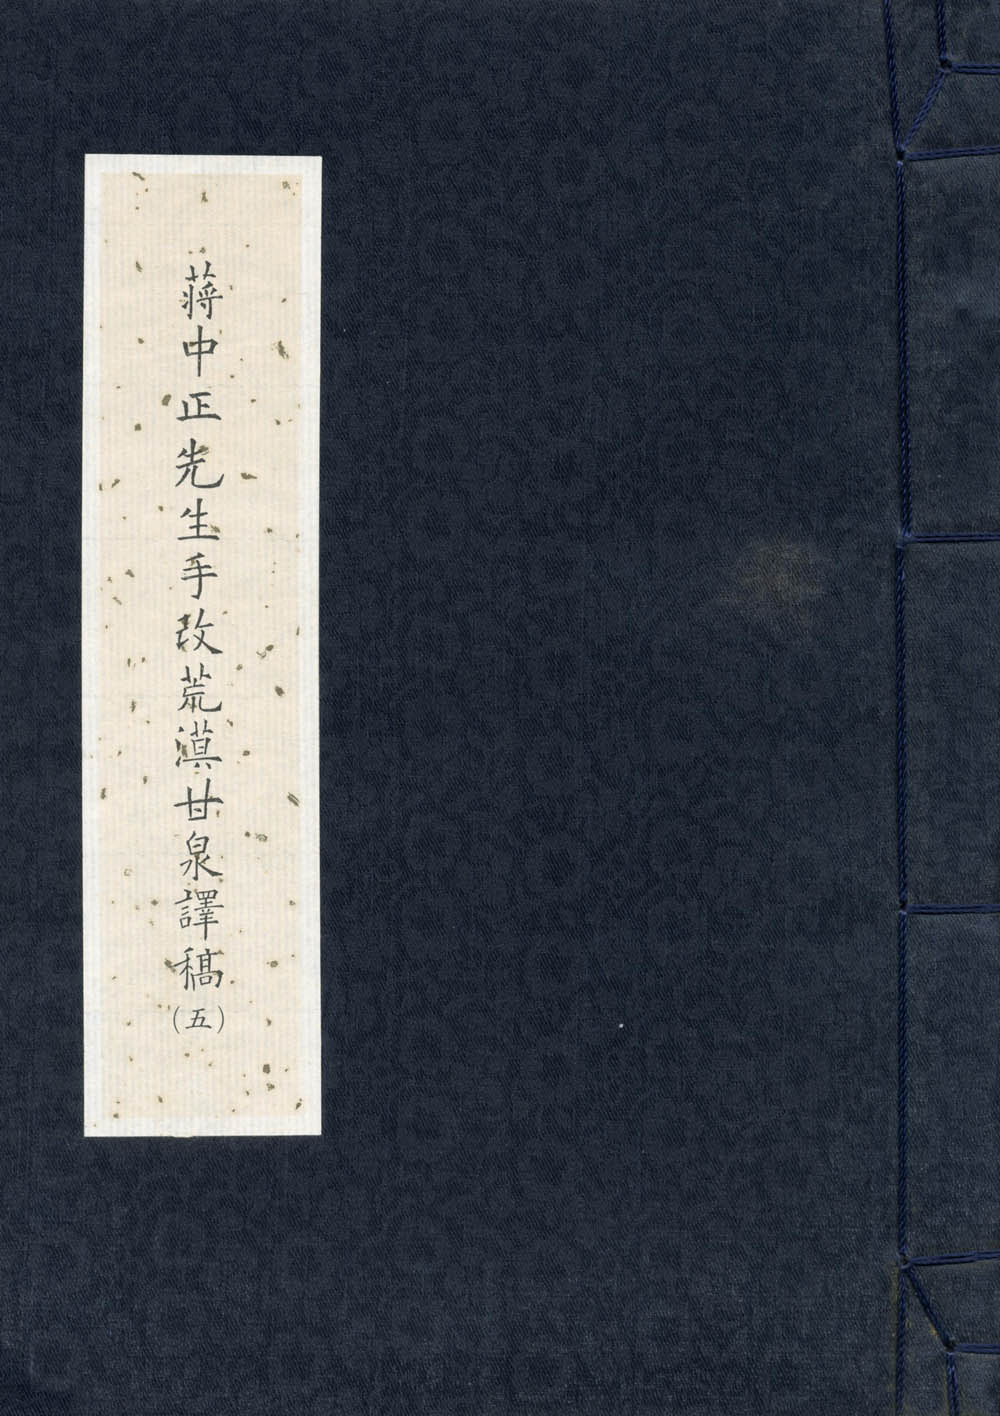 蔣中正先生手改荒漠甘泉譯稿(五)